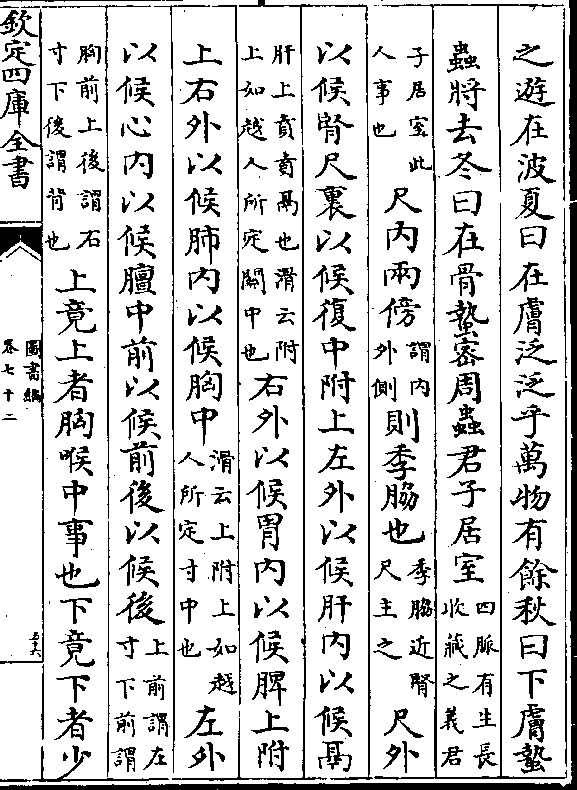 之遊在波夏曰在膚泛泛乎萬物有餘秋曰下膚蟄
蟲將去冬曰在骨蟄密周蟲君子居室四脈有生長收藏之義君
子居室此人事也尺内兩傍謂内外側則季脇也季脇近腎尺主之尺外
以候腎尺裏以候復中附上左外以候肝内以候鬲
肝上賁賁鬲也滑云附上如越人所定關中也右外以候胃内以候脾上附
上右外以候肺内以候胸中滑云上附上如越人所定寸中也左外
以候心内以候膻中前以候前後以候後上前謂左寸下前謂
胸前上後謂石寸下後謂背也上竟上者胸喉中事也下竟下者少
欽定四庫全書
圖書編
卷七十二
五六